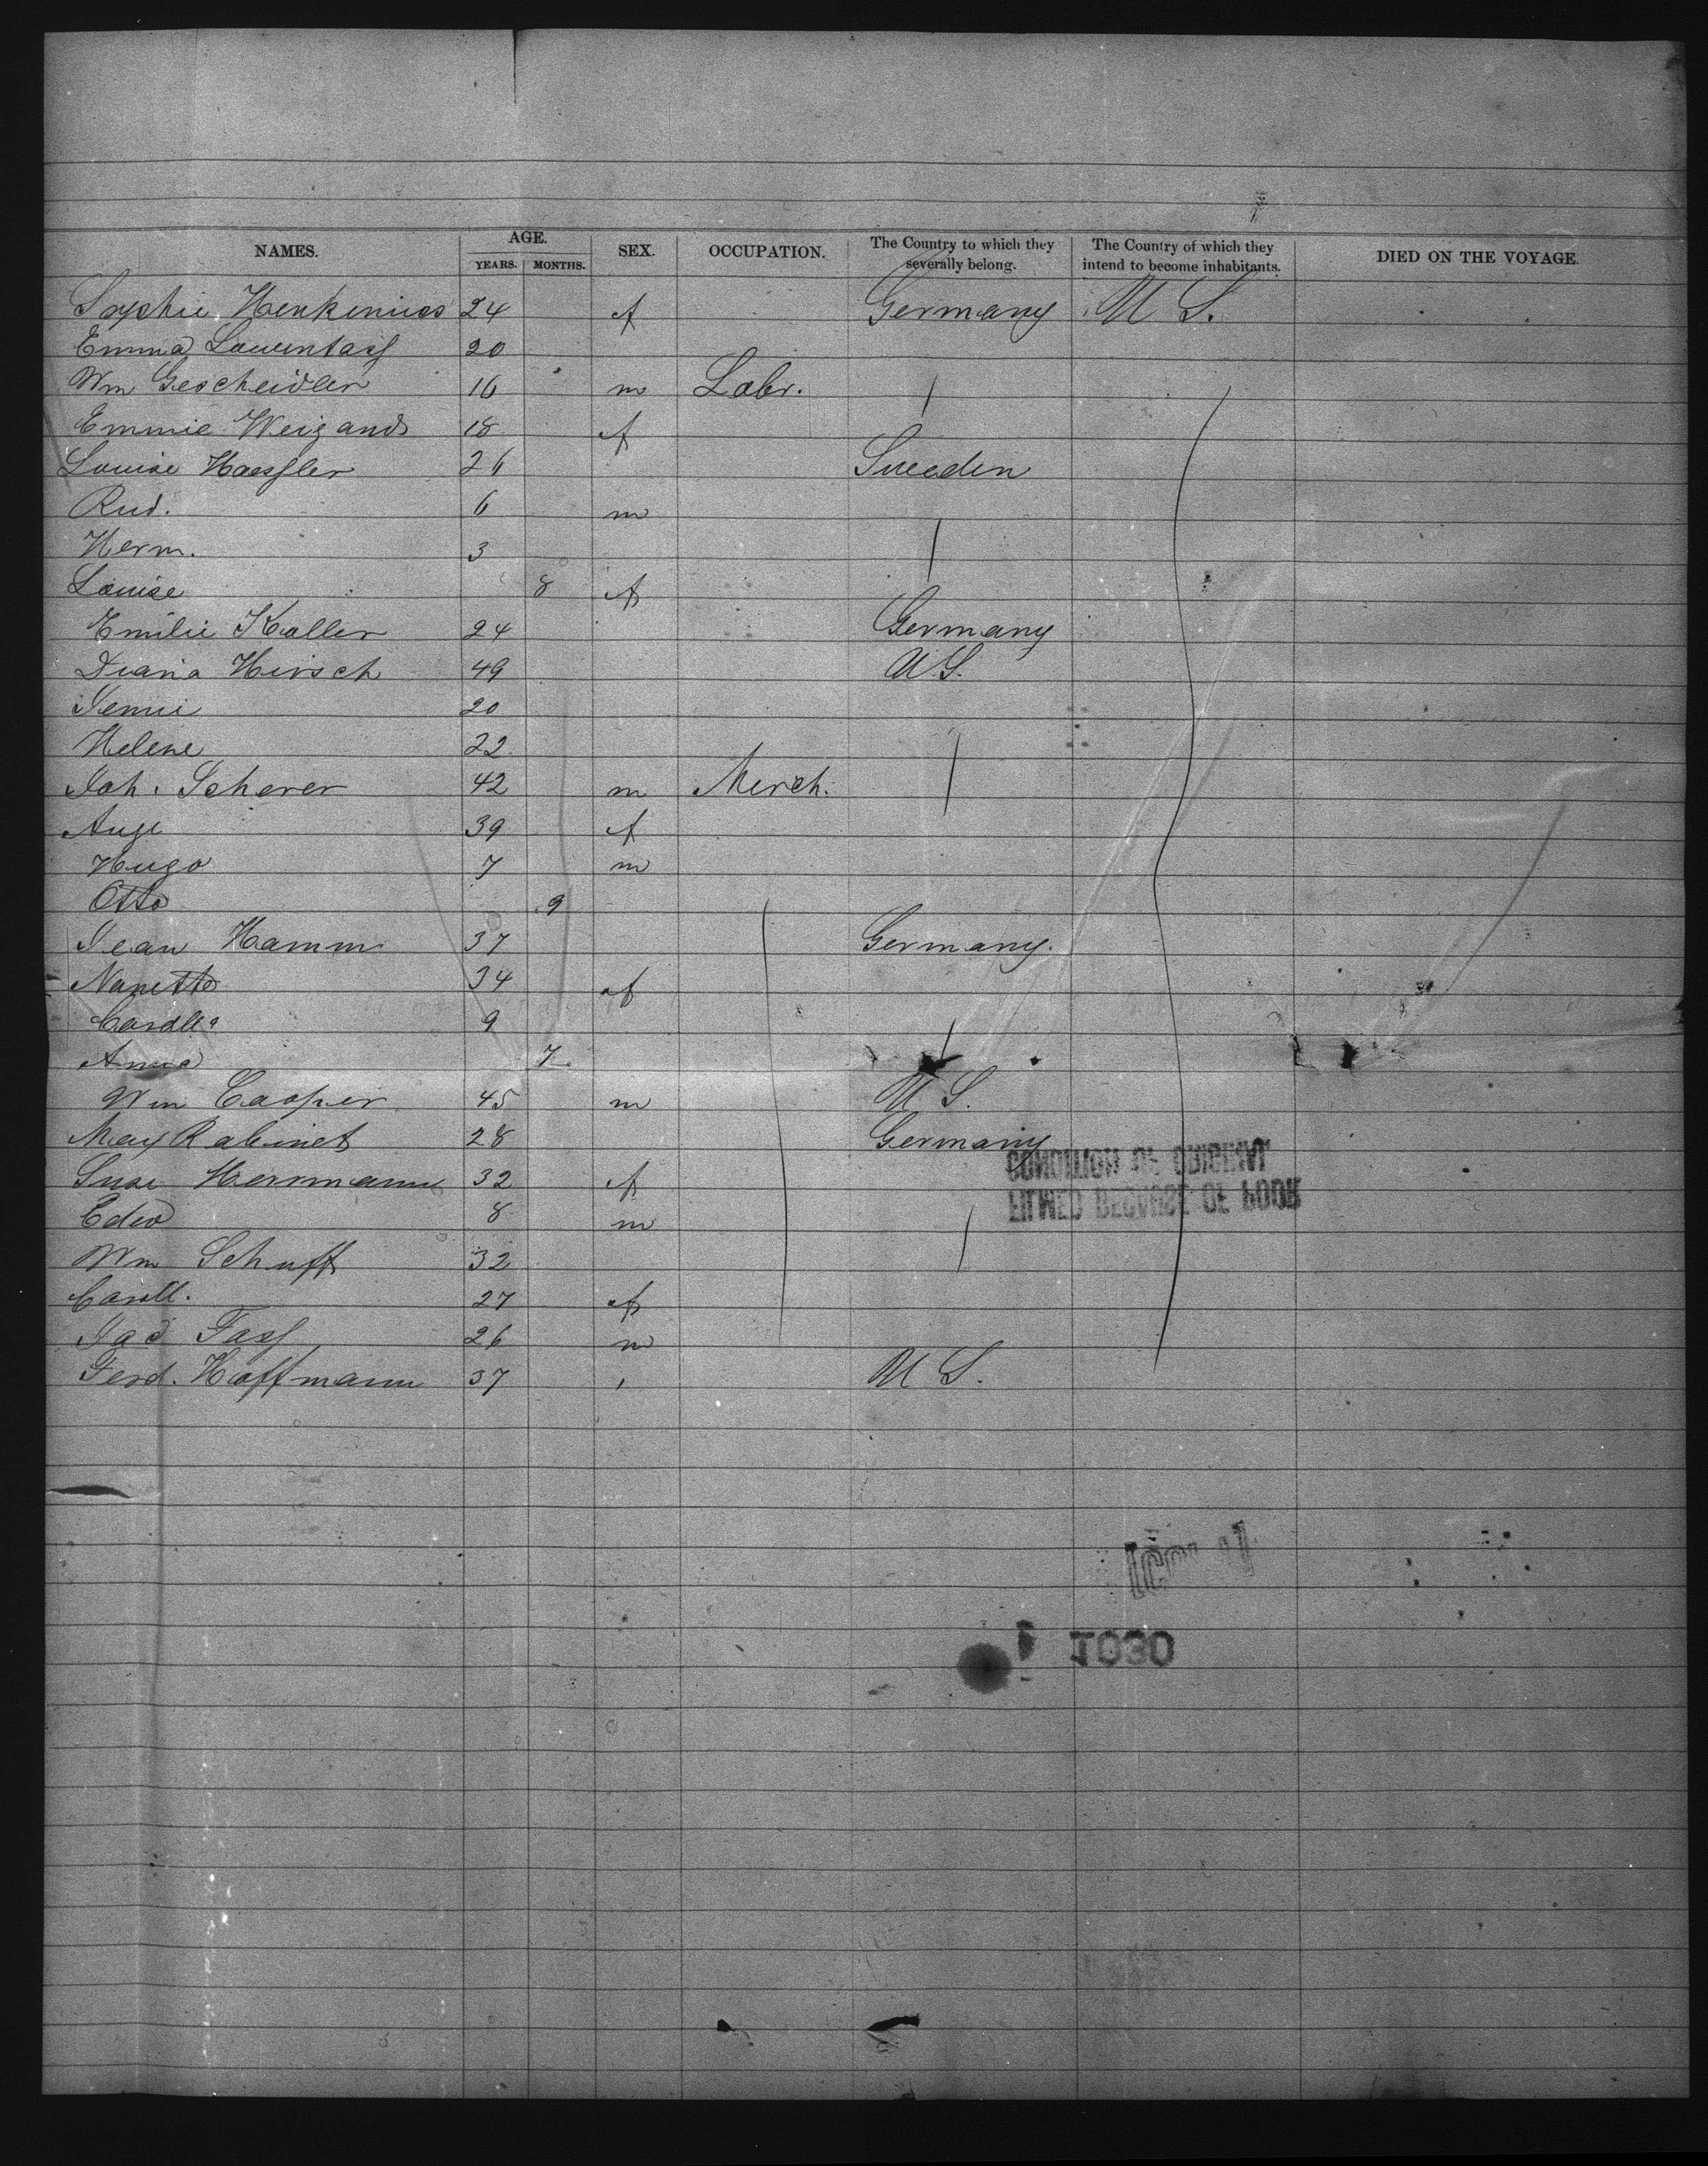 NAMES. AGE. YEARS. MONTHS. SEX. OCCUPATION. The Country to which they severally belong. The Country of which they intend to become inhabitants. DIED ON THE VOYAGE.
Sophie Henkenius 24 f Germany U S.
Emma 20
Wm Gescheidler 16 m Labr.
Emmie Weigand 18 f
Louise Haessler 26 Sweden
Rud. 6 m
Herm. 3
Louise 8 f
Emilie Koller 24 Germany
Diana Hirsch 49 U S.
Jenni 20
Helene 22
Joh. Scherer 42 m Merch.
Auge 39 f
Hugo 7 m
Otto 9
Jean Hamm 37 Germany.
Nanette 34 f
9
Anna 7
Wm Casper 45 m U S.
Max Rabinet 28 Germany
Suse Herrmann 32 f
8 m
Wm Schuff 32
Caroll. 27 f
26 m
Ferd. Hoffmann 37 U S.
CONDITION OF ORIGINAL
FILMED BECAUSE OF POOR
1030